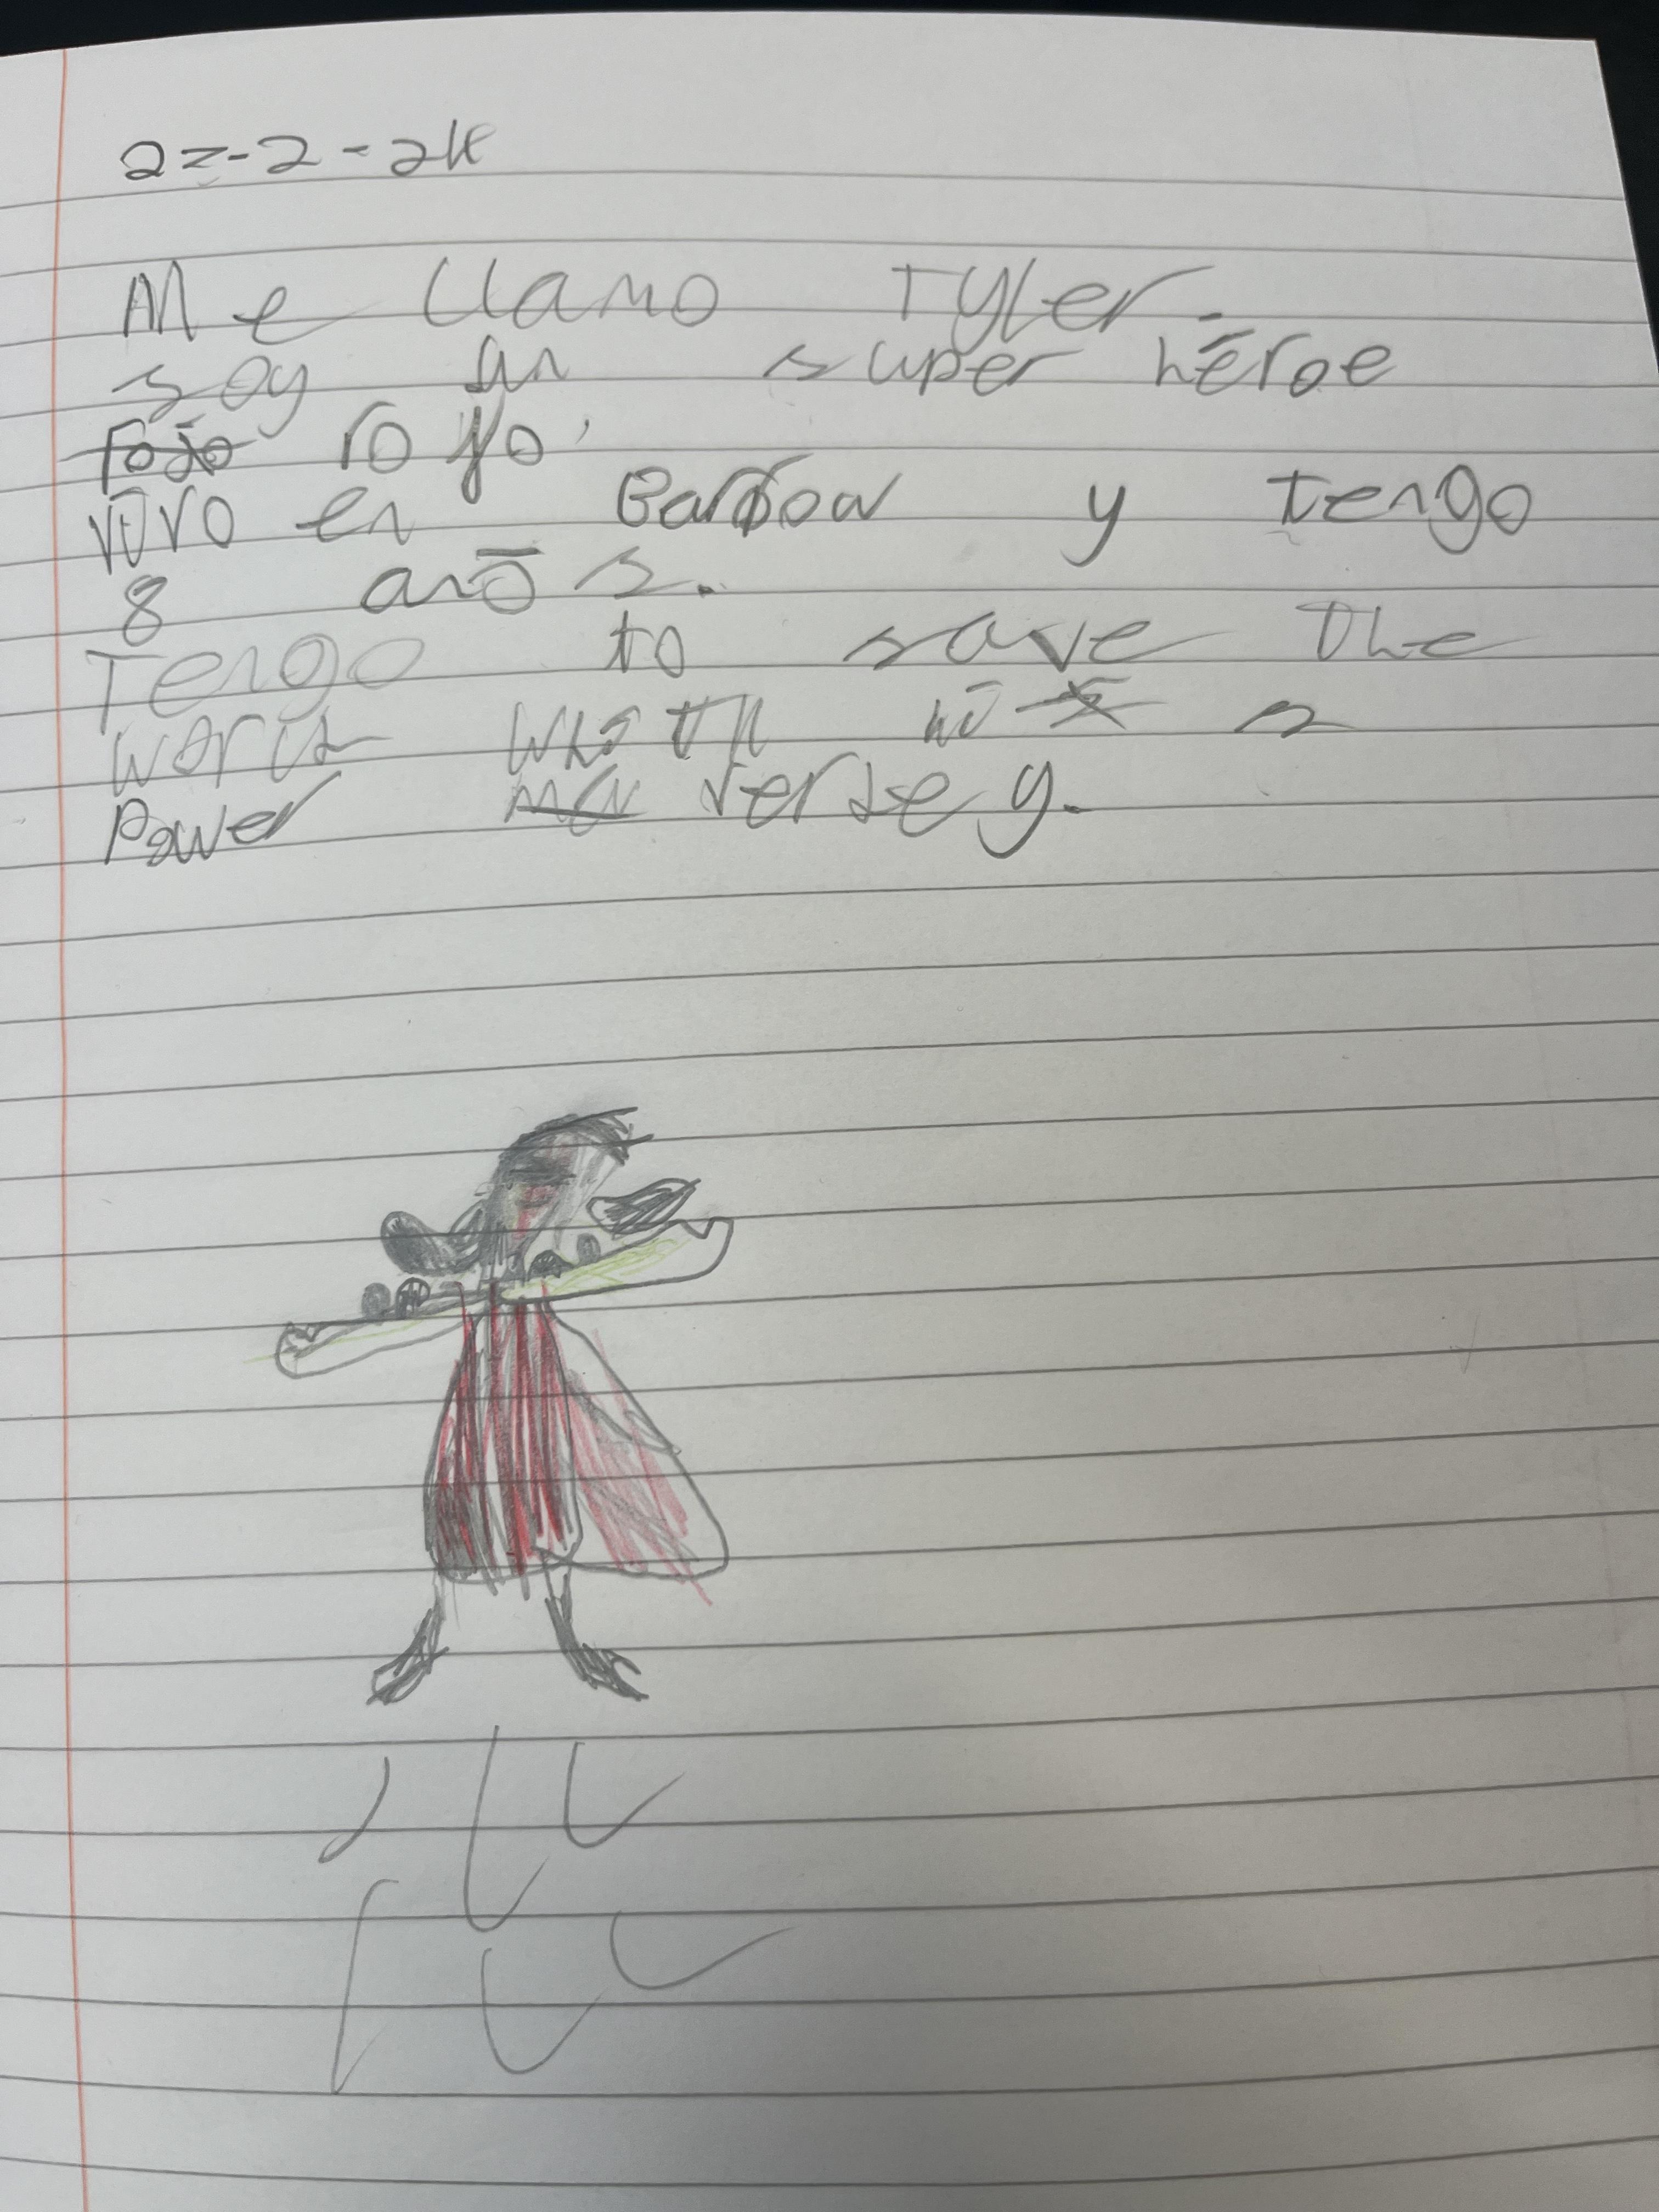 22-2-24
Me llamo Tyler.
soy un super hēroe
rojo rojo.
vīvo en Barrow y tengo
8 anōs.
Tengo to save the
power verse y.